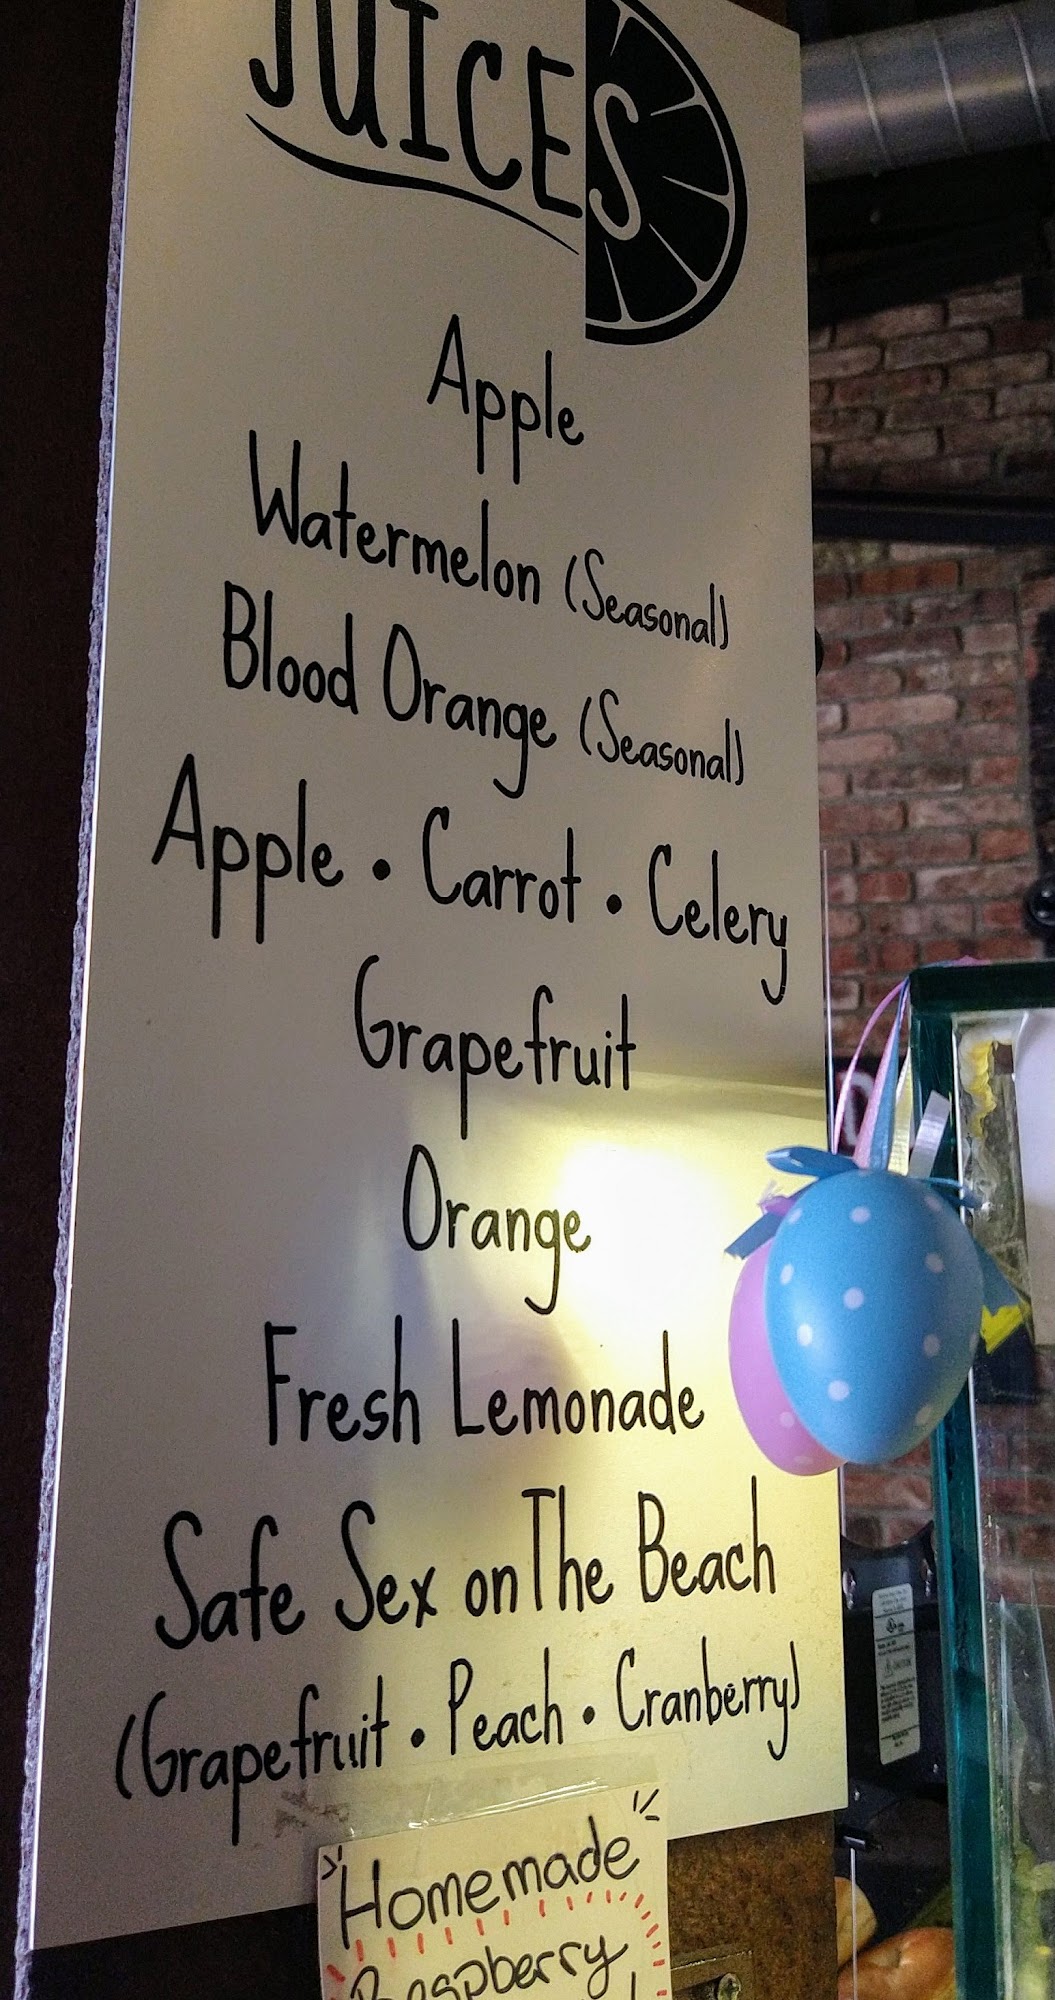 JUICES
Apple
Watermelon (Seasonal)
Blood Orange (Seasonal)
Apple • Carrot • Celery
Grapefruit
Orange
Fresh Lemonade
Safe Sex on The Beach
(Grapefruit • Peach • Cranberry)
Homemade
Raspberry